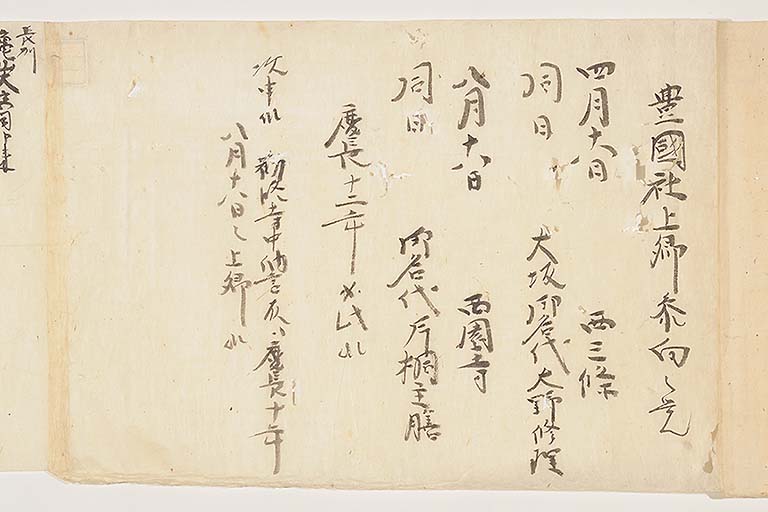 豊國社上卿参向之覚
四月十八日 西三條
同日 大坂御名代大野修理
八月十八日 西園寺
同日 御名代片桐主膳
慶長十二年 如此
次申候 勧修寺中納言殿ハ慶長十年
八月十八日之上卿候
長州